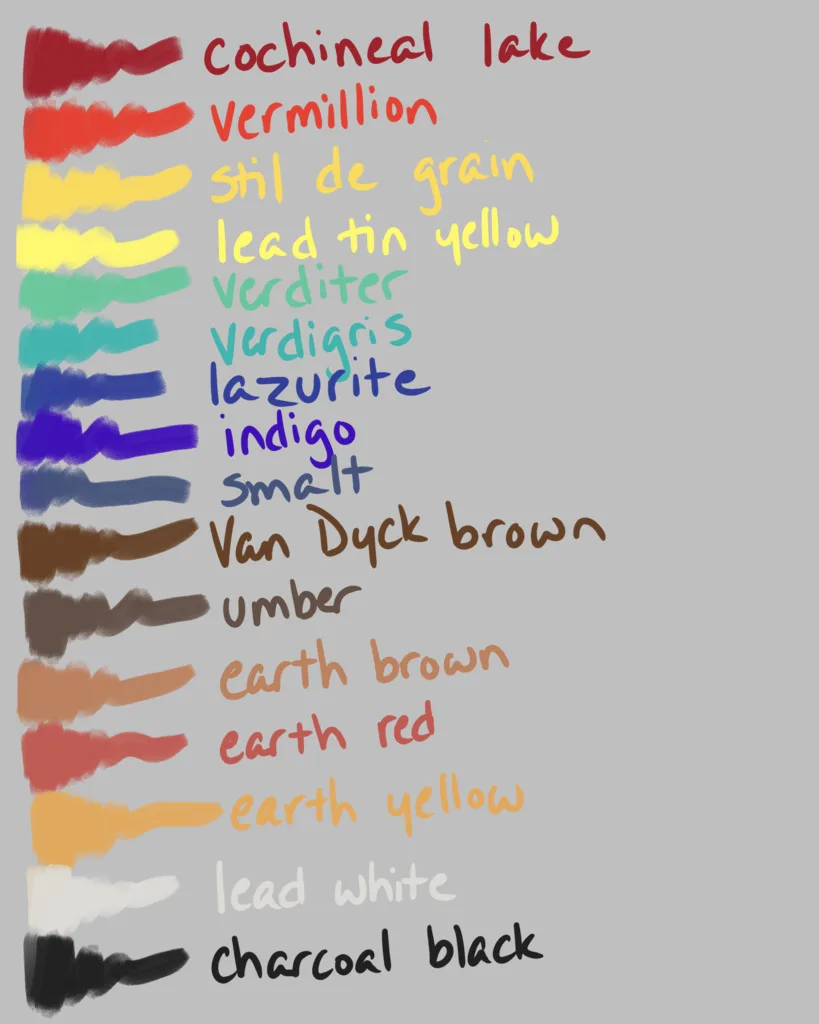 cochineal lake
vermillion
stil de grain
lead tin yellow
verditer
verdigris
lazurite
indigo
smalt
Van Dyck brown
umber
earth brown
earth red
earth yellow
lead white
charcoal black